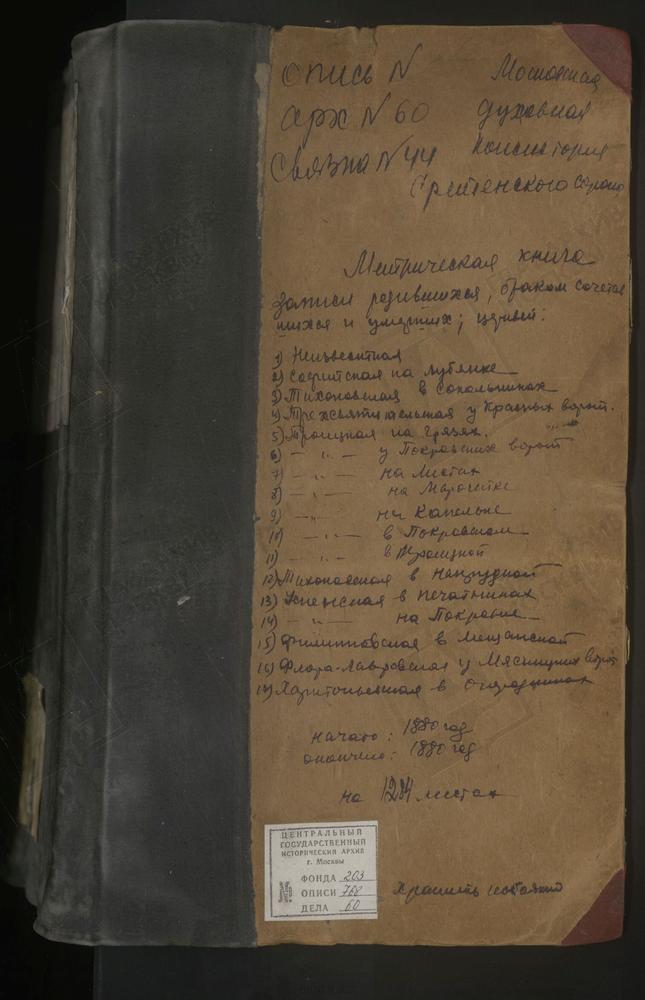 Опись N
Московская
арх N 60
духовная
Связка N 44
Консистория
Сретенского сорока
Метрическая книга
записи родившихся, браком сочетав
шихся и умерших; церквей:
1) Неизвестная
2) Софийская на Лубянке
3) Тихоновская в Сокольниках
4) Трехсвятительская у Красных ворот.
5) Троицкая на Грязях.
6) — " — у Покровских ворот
7) — " — на Листах
8) — " — на Маросейке
9) — " — на Капельке
10) — " — в Покровском
11) — " — в Троицкой
12) Тихоновская в Напрудной
13) Успенская в Печатниках
14) — " — на Покровке
15) Филипповская в Мещанской
16) Флора-Лавровская у Мясницких ворот
17) Харитоньевская в Огородниках
начато: 1880 год
окончено: 1880 год
на 1284 листах
ЦЕНТРАЛЬНЫЙ
ГОСУДАРСТВЕННЫЙ
ИСТОРИЧЕСКИЙ АРХИВ
г. Москвы
ФОНДА 203
ОПИСИ 760
ДЕЛА 60
Хранить